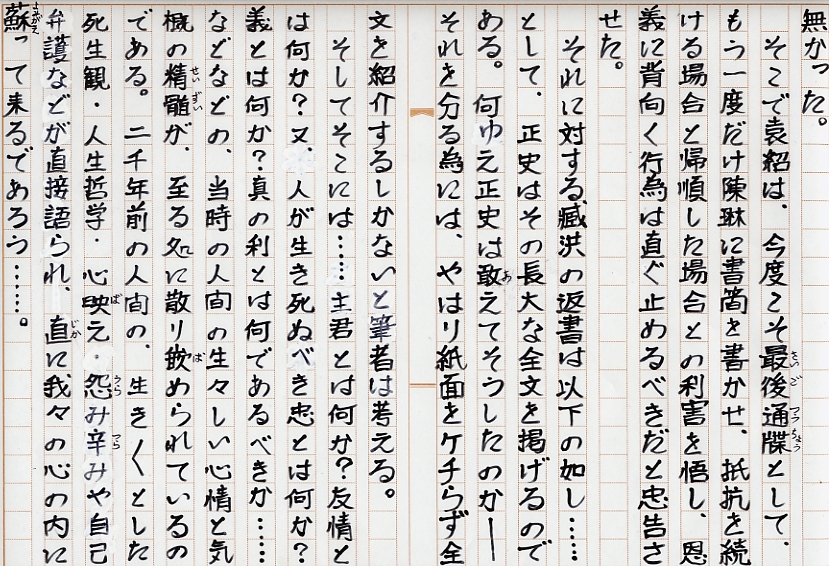 無かった。
そこで袁紹は、今度こそ最後通牒として、
もう一度だけ陳琳に書簡を書かせ、抵抗を続
ける場合と帰順した場合との利害を悟し、恩
義に背向く行為は直ぐ止めるべきだと忠告さ
せた。
それに対する臧洪の返書は以下の如し……
として、正史はその長大な全文を掲げるので
ある。何ゆえ正史は敢えてそうしたのか―
それを分る為には、やはり紙面をケチらず全
文を紹介するしかないと筆者は考える。
そしてそこには……主君とは何か?友情と
は何か?又、人が生き死ぬべき忠とは何か?
義とは何か?真の利とは何であるべきか……
などなどの、当時の人間の生々しい心情と気
概の精髄が、至る処に散り嵌められているの
である。二千年前の人間の、生き〱とした
死生観・人生哲学・心映え・怨み辛みや自己
弁護などが直接語られ、直に我々の心の内に
蘇って来るであろう……。